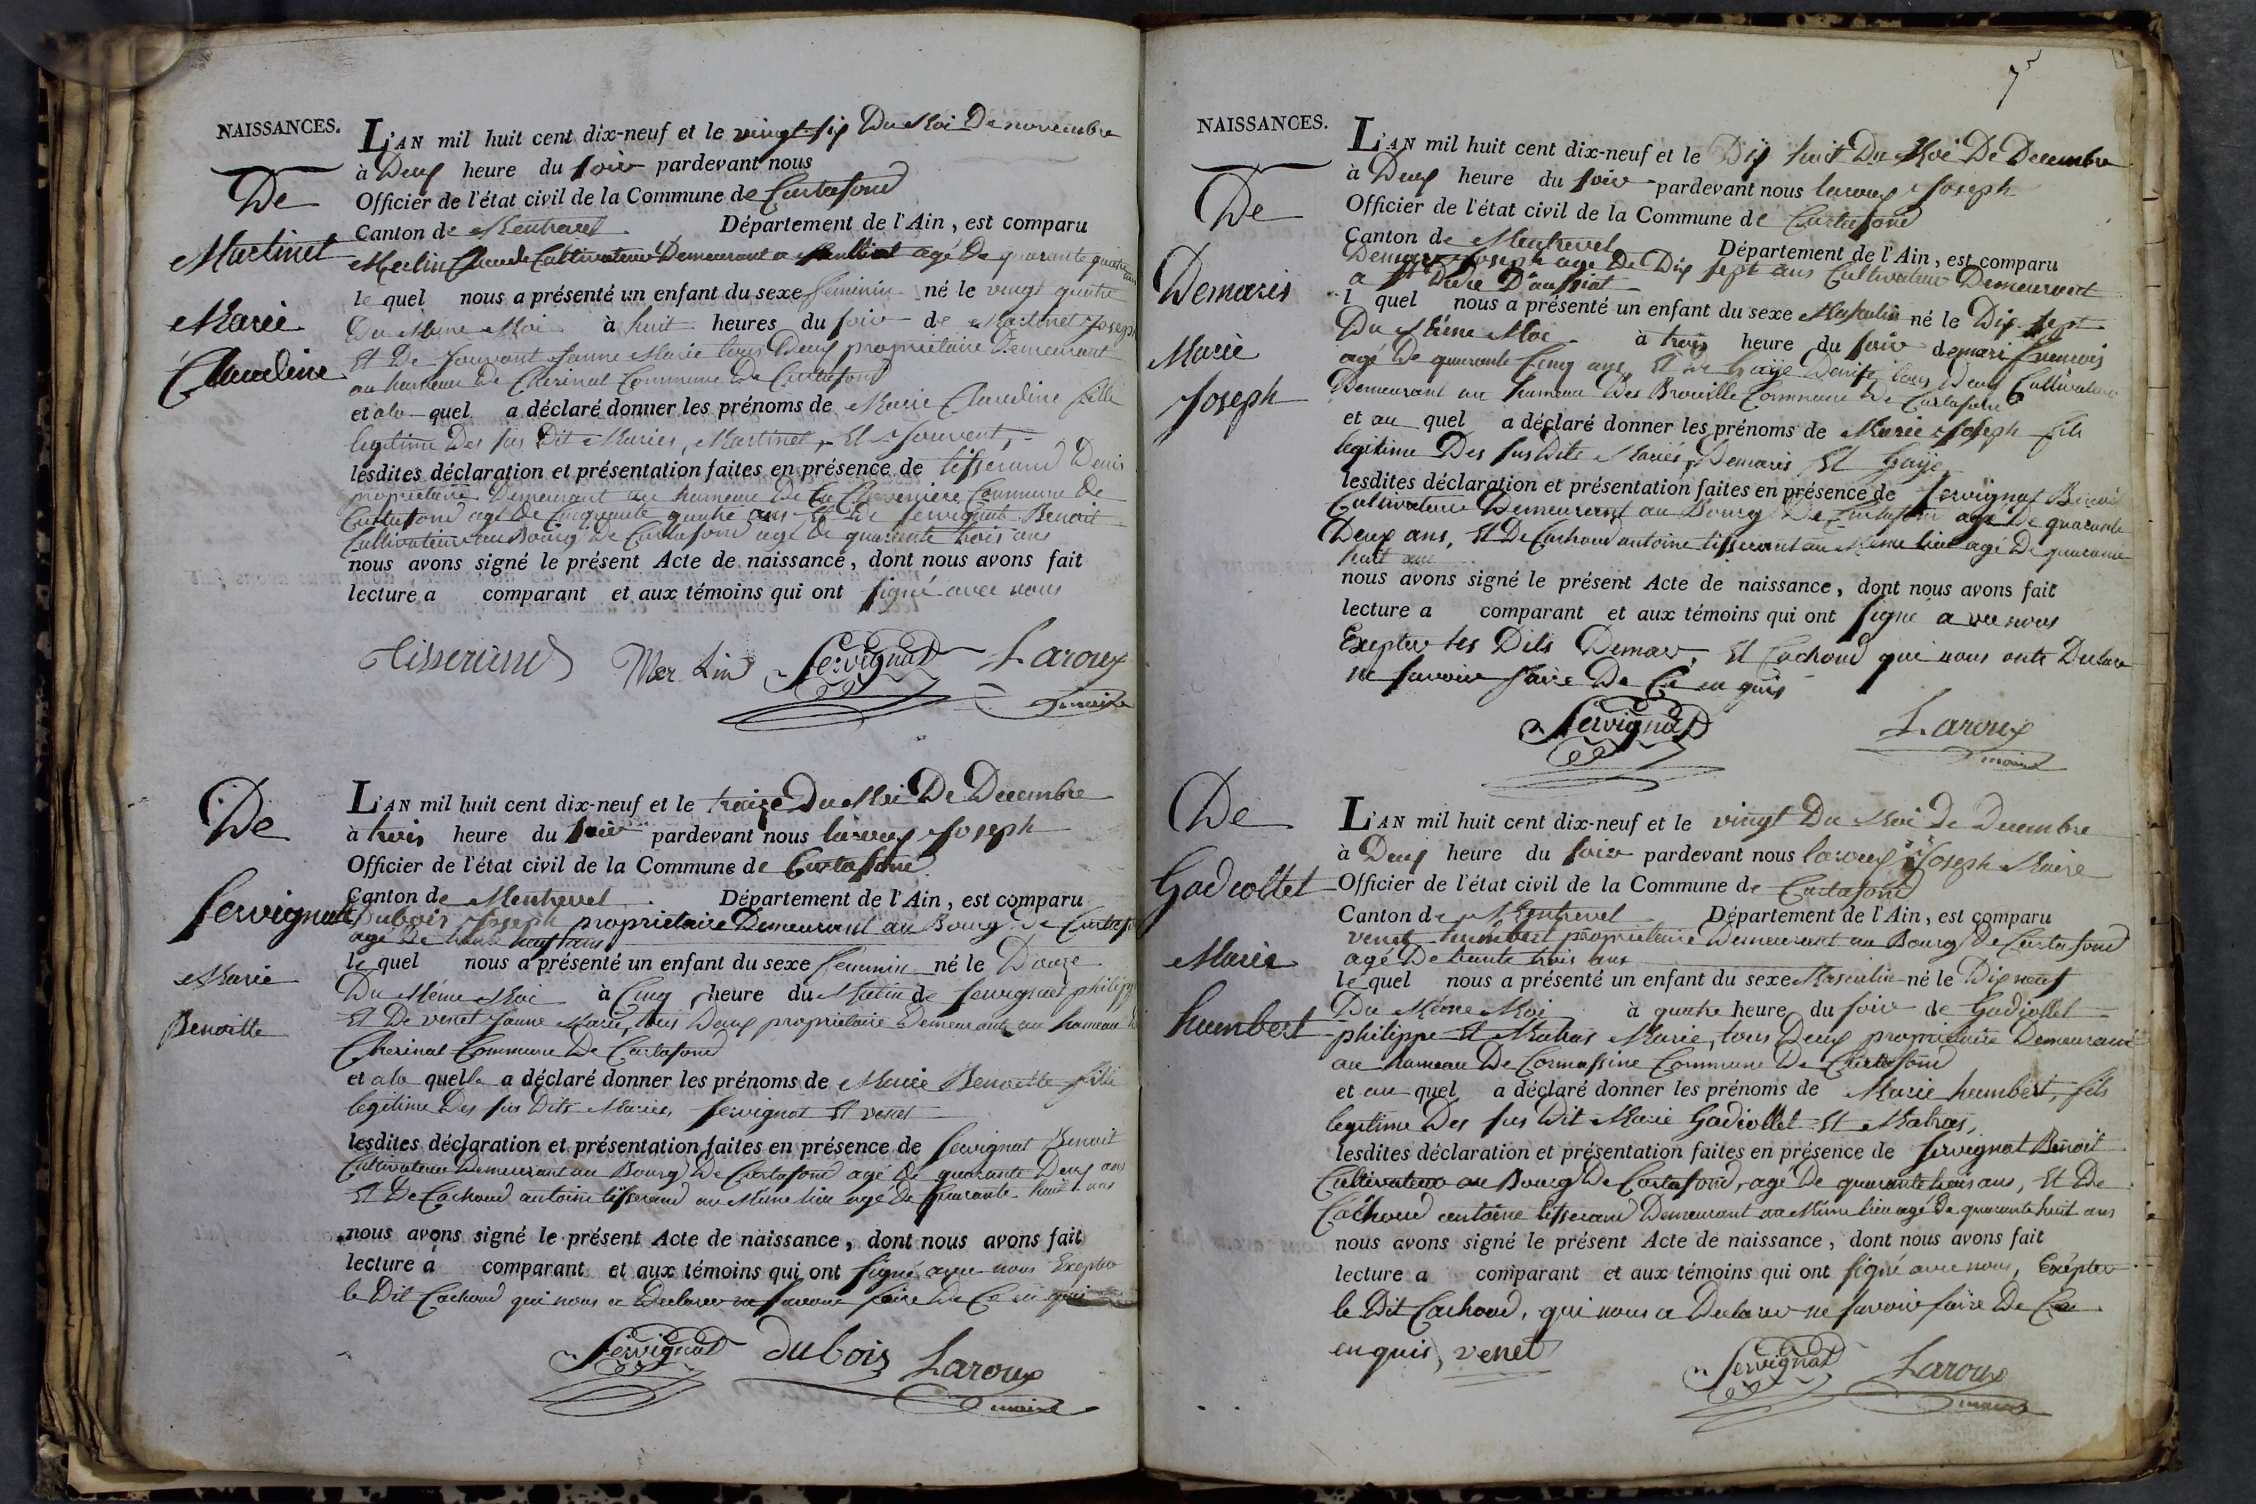 NAISSANCES.
De
Martinet
Marie
Claudine
L'AN mil huit cent dix-neuf et le vingt six Du Moi De novembre
à Deux heure du soir pardevant nous
Officier de l'état civil de la Commune de Curtafond
Canton de Montrevel Département de l'Ain, est comparu
Merlin Claude Cultivateur Demeurant a agé De quarante quatre ans
le quel nous a présenté un enfant du sexe feminin né le vingt quatre
Du Meme Moi à huit heures du soir de Martinet Joseph
Et De Jouvent Janne Marie tous Deux propriétaire Demeurant
au hameau De Cherinal Commune De Curtafond
et a la quel a déclaré donner les prénoms de Marie Claudine fille
legitime Des sus Dit Mariés, Martinet, Et Jouvent,
lesdites déclaration et présentation faites en présence de tisserand Denis
propriétaire Demeurant au hameau De la Commune De
Curtafond agé De Cinquante quatre ans Et De servignat Benoit
Cultivateur au Bourg De Curtafond agé De quarante trois ans
nous avons signé le présent Acte de naissance, dont nous avons fait
lecture a comparant et aux témoins qui ont signé avec nous
tisserand Mer Lin Servignat Laroux
maire
De
servignat
Marie
Benoitte
L'AN mil huit cent dix-neuf et le traize Du Moi De Decembre
à trois heure du soir pardevant nous laroux Joseph
Officier de l'état civil de la Commune de Curtafond
Canton de Montrevel Département de l'Ain, est comparu
Dubois Joseph propriétaire Demeurant au Bourg De Curtafond
agé De trente ans
le quel nous a présenté un enfant du sexe feminin né le Douze
Du Méme Moi à Cinq heure du Matin de servignat philippe
Et De venet Janne Marie, tous Deux propriétaire Demeurant au hameau De
Cherinal Commune De Curtafond
et a la quelle a déclaré donner les prénoms de Marie Benoitte fille
legitime Des sus Dits Mariés servignat Et venet
lesdites déclaration et présentation faites en présence de servignat Benoit
Cultivateur Demeurant au Bourg De Curtafond agé De quarante Deux ans
Et De Cachoud antoine tisserand au Méme lieu agé De quarante huit ans
nous avons signé le présent Acte de naissance, dont nous avons fait
lecture a comparant et aux témoins qui ont signé avec nous Exepter
le Dit Cachoud qui nous a Declarer ne savoir faire De Ce en quis
Servignat dubois Laroux
maire
7
NAISSANCES.
De
Demaris
Marie
Joseph
L'AN mil huit cent dix-neuf et le Dix huit Du Moi De Decembre
à Deux heure du soir pardevant nous laroux Joseph
Officier de l'état civil de la Commune de Curtafond
Canton de Montrevel Département de l'Ain, est comparu
Demare Joseph age De Dix sept ans Cultivateur Demeurant
a st Didie D'aussiat
l quel nous a présenté un enfant du sexe Masculin né le Dix sept
Du Méme Moi à trois heure du soir demari francois
agé De quarante Cinq ans, Et De Denise tous Deux Cultivateur
Demeurant au hameau Des Brouille Commune De Curtafond
et au quel a déclaré donner les prénoms de Marie Joseph fils
legitime Des sus Dits Mariés, Demaris Et
lesdites déclaration et présentation faites en présence de servignat Benoit
Cultivateur Demeurant au Bourg De Curtafond agé De quarante
Deux ans, Et De Cachoud antoine tisserant au Méme lieu agé De quarante
huit ans
nous avons signé le présent Acte de naissance, dont nous avons fait
lecture a comparant et aux témoins qui ont signé a vec nous
Exepter les Dits Demar, Et Cachoud qui nous onts Declare
ne savoir faire De Ce en quis
Servignat Laroux
maire
De
Gadiollet
Marie
humbert
L'AN mil huit cent dix-neuf et le vingt Du Moi De Decembre
à Deux heure du soir pardevant nous laroux Joseph Maire
Officier de l'état civil de la Commune de Curtafond
Canton de Montrevel Département de l'Ain, est comparu
venet humbert propriétaire Demeurant au Bourg De Curtafond
agé De trente trois ans
le quel nous a présenté un enfant du sexe Masculin né le Dix neuf
Du Méme Moi à quatre heure du soir de Gadiollet
philippe Et Matras Marie, tous Deux propriétaire Demeurant
au hameau De Cormassine Commune De Curtafond
et au quel a déclaré donner les prénoms de Marie humbert, fils
legitime Des sus Dit Marié Gadiollet Et Matras,
lesdites déclaration et présentation faites en présence de servignat Benoit
Cultivateur au Bourg De Curtafond, agé De quarante trois ans, Et De
Cachoud antoine tisserand Demeurant au Méme lieu agé De quarante huit ans
nous avons signé le présent Acte de naissance, dont nous avons fait
lecture a comparant et aux témoins qui ont signé avec nous, Exépter
le Dit Cachoud, qui nous a Declarer ne savoir faire De Ce
en quis, venet Servignat Laroux
maire